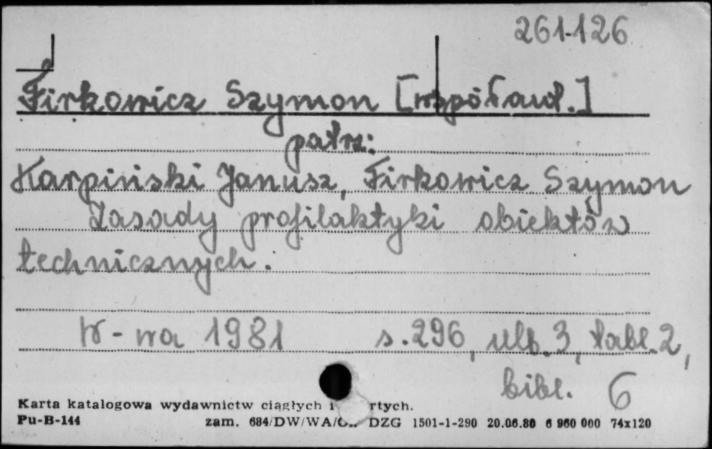 261-126
Firkowicz Szymon [współaut.]
patrz:
Karpiński Janusz, Firkowicz Szymon
Zasady profilaktyki obiektów
technicznych.
W-wa 1981 s.296, ulb.3, tabl.2,
bibl. 6
Karta katalogowa wydawnictw ciągłych
Pu-B-144 zam. 684/DW/WA/ DZG 1501-1-290 20.06.80 6 960 000 74x120